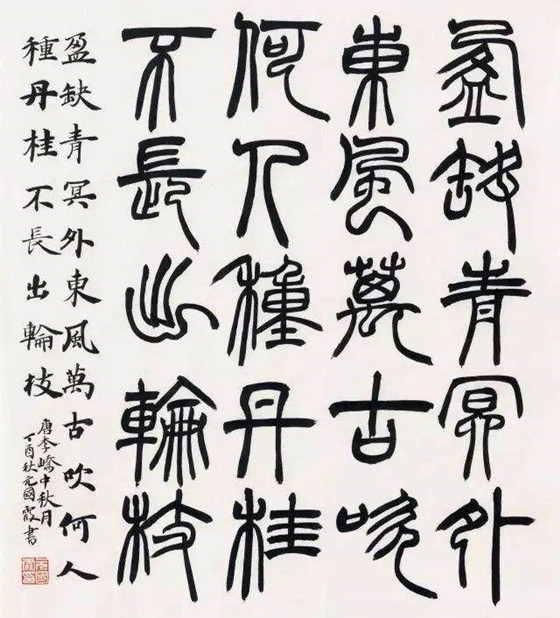 盈缺青冥外
東風萬古吹
何人種丹桂
不長出輪枝
盈缺青冥外東風萬古吹何人
種丹桂不長出輪枝
唐李嶠中秋月
丁酉秋元國霞書